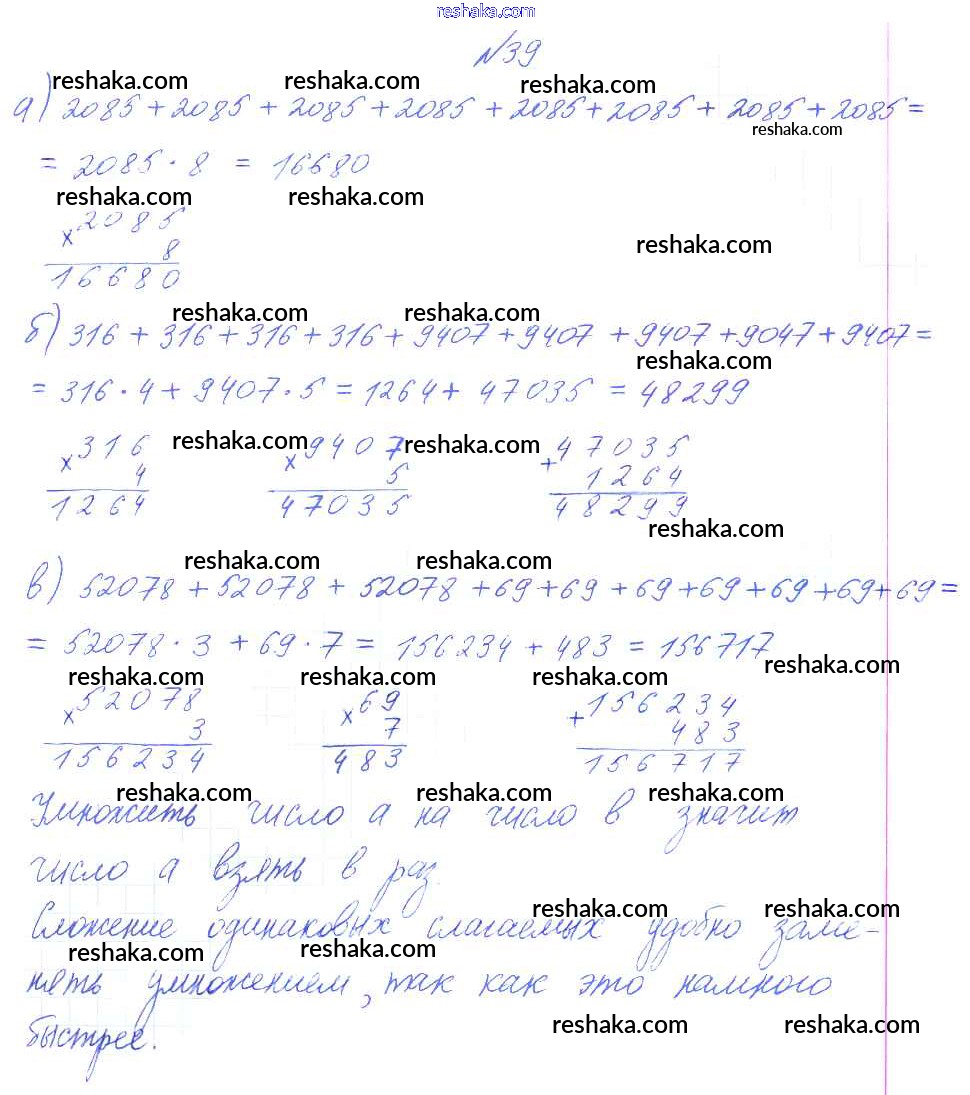 reshaka.com
№39
reshaka.com reshaka.com reshaka.com
а) 2085 + 2085 + 2085 + 2085 + 2085 + 2085 + 2085 + 2085 =
reshaka.com
= 2085 · 8 = 16680
reshaka.com reshaka.com
× 2085
8
reshaka.com
16680
reshaka.com reshaka.com
б) 316 + 316 + 316 + 316 + 9407 + 9407 + 9407 + 9047 + 9407 =
reshaka.com
= 316 · 4 + 9407 · 5 = 1264 + 47035 = 48299
reshaka.com reshaka.com
× 316 × 9407 + 47035
4 5 1264
1264 47035 48299
reshaka.com
reshaka.com reshaka.com
в) 52078 + 52078 + 52078 + 69 + 69 + 69 + 69 + 69 + 69 + 69 =
= 52078 · 3 + 69 · 7 = 156234 + 483 = 156717
reshaka.com
reshaka.com reshaka.com reshaka.com
× 52078 × 69 + 156234
3 7 483
156234 483 156717
reshaka.com reshaka.com reshaka.com
Умножить число а на число в значит
число а взять в раз.
reshaka.com reshaka.com
Сложение одинаковых слагаемых удобно заме-
reshaka.com reshaka.com
нять умножением, так как это намного
reshaka.com reshaka.com
быстрее.